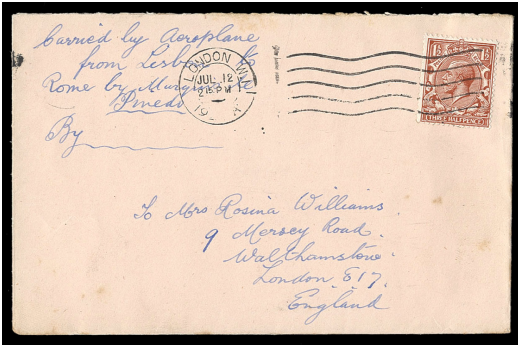 Carried by Aeroplane
from Lisbon to
Rome by Marquis de
Pinedo
By
LONDON W.1
JUL 12
2 15 PM
19
1½ 1½
THREE HALFPENCE
To Mrs Rosina Williams.
9 Mersey Road.
Walthamstow.
London. E17.
England